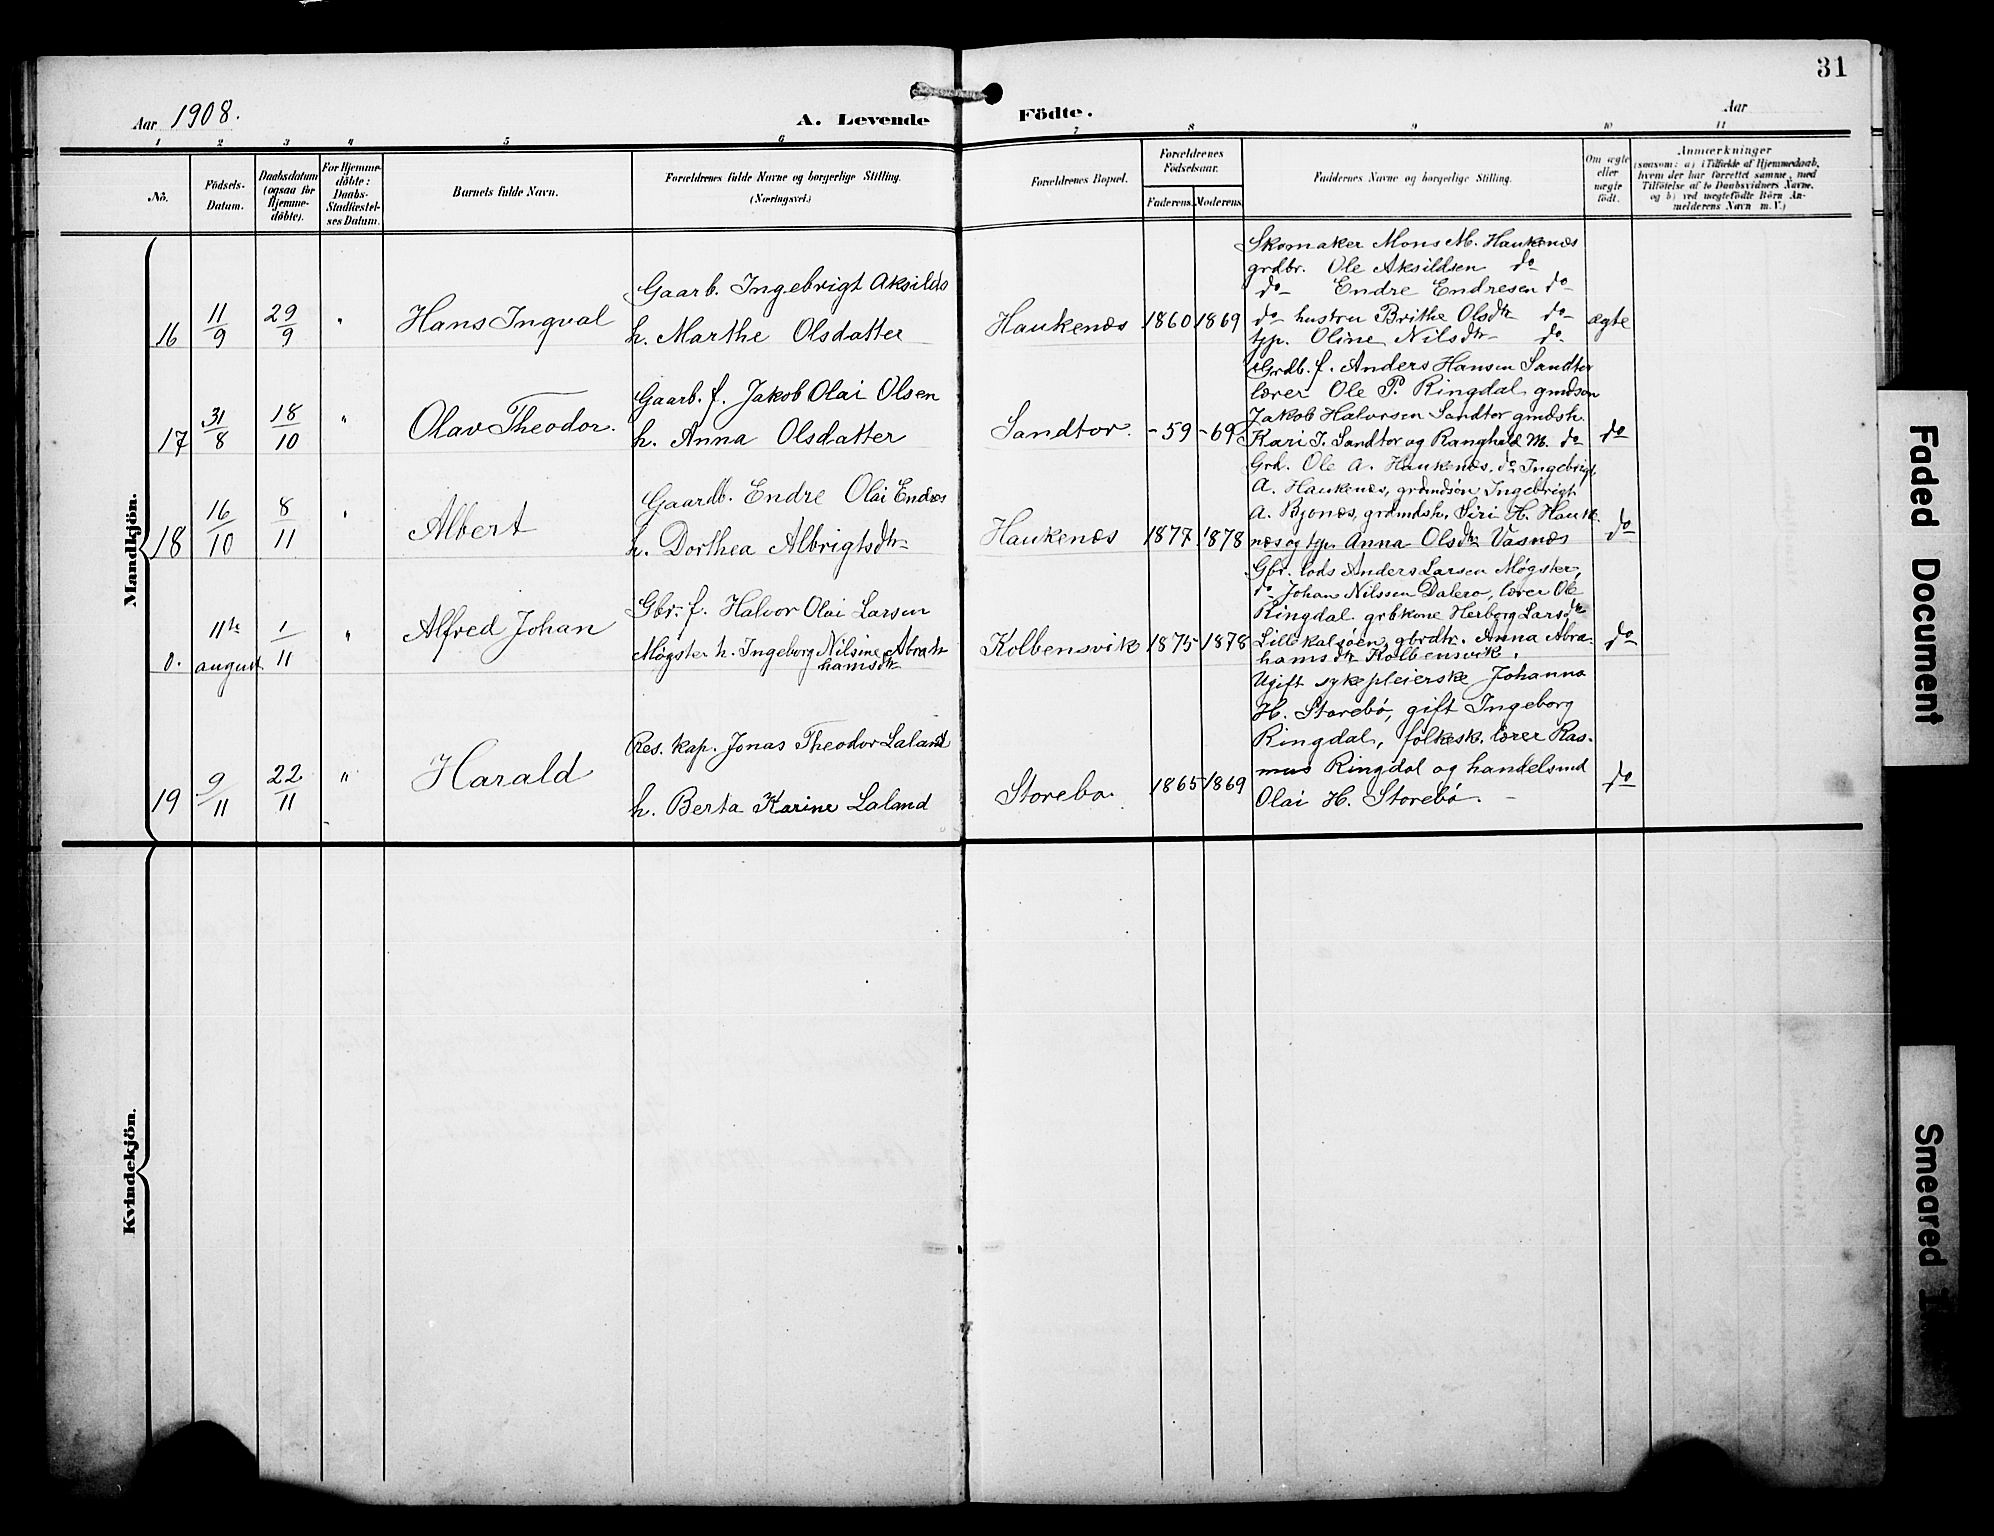 31
Aar 1908.
A. Levende Födte.
Aar
1 2 3 4 5 6 7 8 9 10 11
No.
Födsels-Datum.
Daabsdatum (ogsaa for Hjemme-döbte).
For Hjemme-döbte: Daabs-Stadfæstel-ses Datum.
Barnets fulde Navn.
Forældrenes fulde Navne og borgerlige Stilling. (Næringsvei.)
Forældrenes Bopæl.
Forældrenes Födselsaar.
Faderens. Moderens.
Faddernes Navne og borgerlige Stilling.
Om ægte eller uægte födt.
Anmærkninger
(saasom: a) i Tilfælde af Hjemmedaab, hvem der har forrettet samme, med Tilföielse af to Daabsvidners Navne, og b) ved uægtefödte Börn An-melderens Navn m. V.)
Mandkjön.
16 11/9 29/9 " Hans Ingval
Gaarb. Ingebrigt Aksilds
h. Marthe Olsdatter
Haukenæs 1860 1869
Skomaker Mons M. Haukenæs
grdbr. Ole Aksildsen do
do Endre Endresen do
do hustru Brithe Olsdtr do
tjp. Oline Nilsdtr do
ægte
17 31/8 18/10 " Olav Theodor.
Gaarb. f. Jakob Olai Olsen
h. Anna Olsdatter
Sandtor. -59 -69
Grdb. f. Anders Hansen Sandtor
lærer Ole P. Ringdal gmdsøn
Jakob Halvorsen Sandtor gmdsh.
Kari J. Sandtor og Ranghild M. do
do
18 16/10 8/11 " Albert
Gaardb. Endre Olai Endres
h. Dorthea Albrigtsdtr
Haukenæs 1877 1878
Grd. Ole A. Haukenæs, do Ingebrigt
A. Haukenæs, grdmdsøn Ingebrigt
A. Bjonæs, grdmdsh. Siri H. Hauke
næs og tjp. Anna Olsdtr Vasnæs
do
0. 11te august 1/11 " Alfred Johan
Gbr. f. Halvor Olai Larsen
Møgster h. Ingeborg Nilsine Abra
hamsdtr
Kolbensvik 1875 1878
Gbr. lods Anders Larsen Møgster,
do Johan Nilssen Dalerø, lærer Ole
Ringdal grbkone Herborg Larsdtr
Lillekalsøen, gbrdtr. Anna Abra-
hamsdtr Kolbensvik.
do
19 9/11 22/11 " Harald
Res. kap. Jonas Theodor Laland
h. Berta Karine Laland
Storebø. 1865 1869
Ugift sykepleierske Johanna
H. Storebø, gift Ingeborg
Ringdal, folkesk. lærer Ras-
mus Ringdal og handelsmd
Olai H. Storebø.
do
Kvindekjön.
Faded Document
Smeared